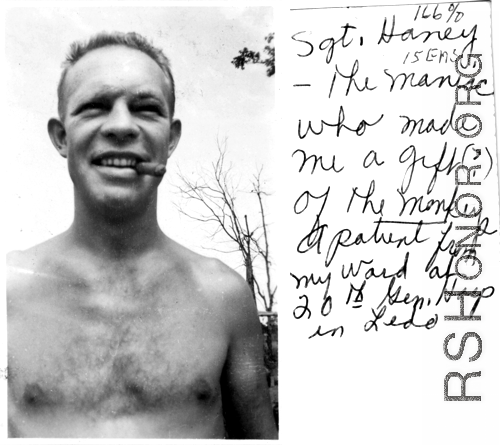 166%
Sgt. Haney
15 EAS
- The Maniac
who made
me a gift(?)
of the monk.
A patient from
my ward at
20th Gen. Hosp
in Ledo
RSHONOR.ORG